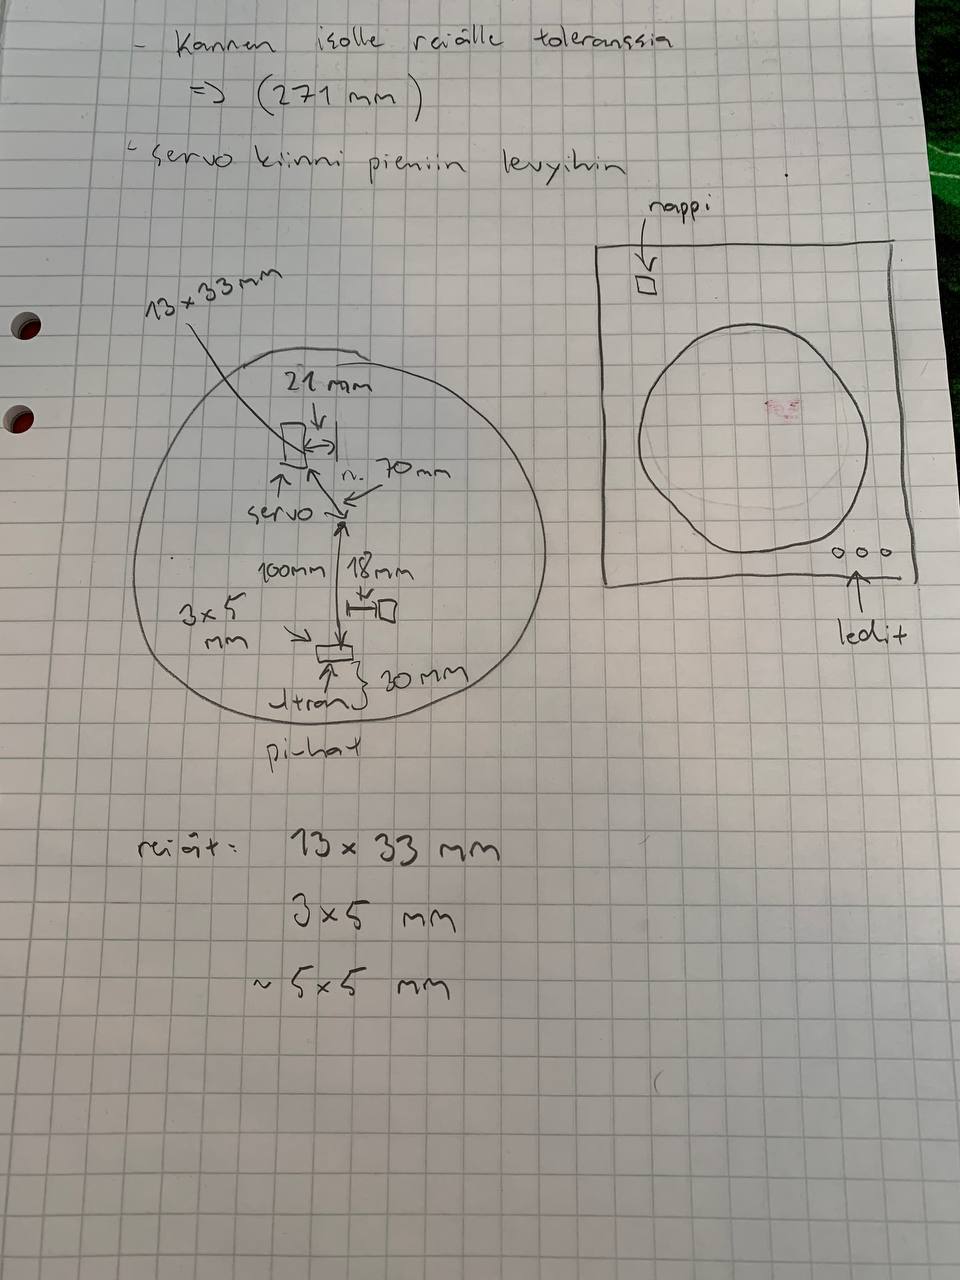 - Kannen isolle reiälle toleranssia
=> (271 mm)
- servo kiinni pieniin levyihin
nappi
13 x 33 mm
21 mm
n. 70 mm
servo
100mm
18mm
3x5
mm
30 mm
pi-hat
ledit
reiät: 13 x 33 mm
3x5 mm
~ 5x5 mm